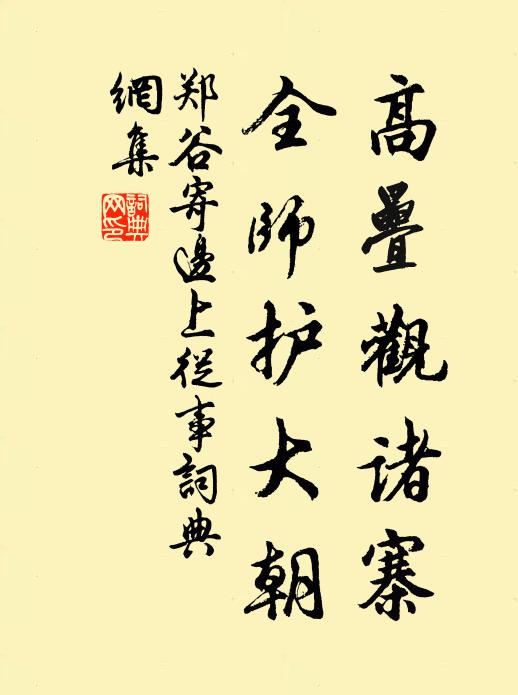 高疊觀诸寨
全师护大朝
郑谷寄邊上從事詞典
網集
詞典
网印